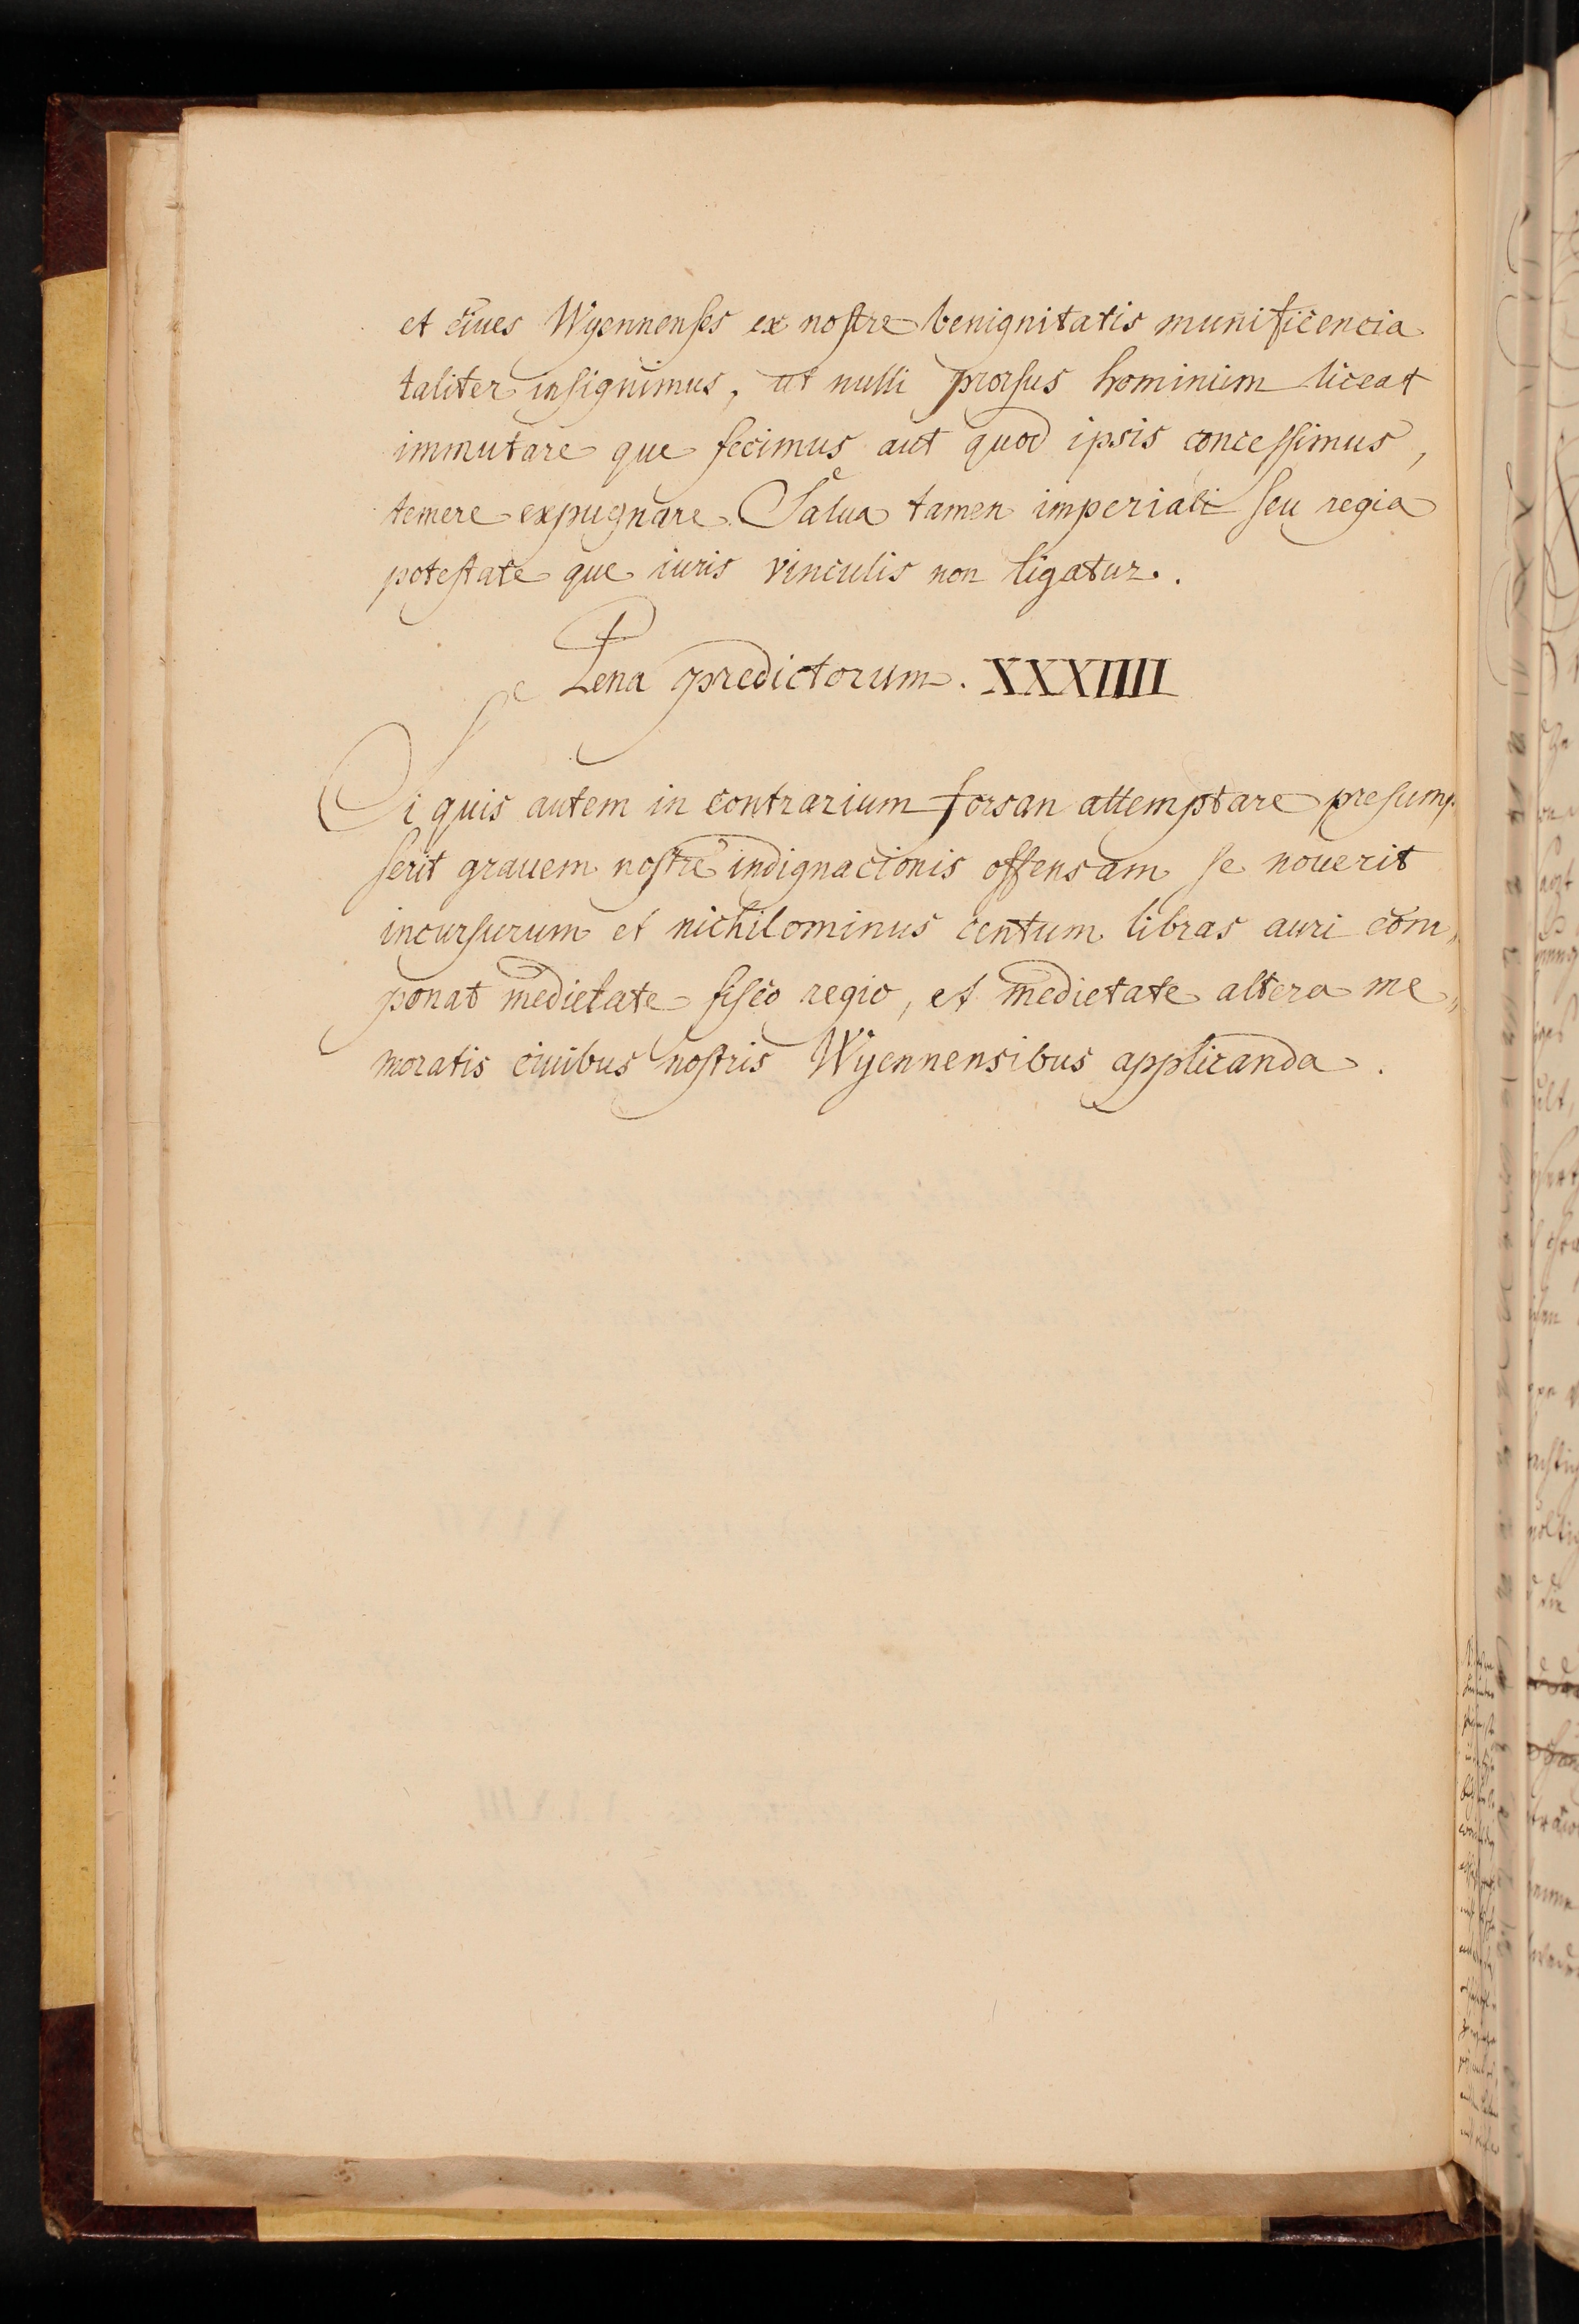 et ciues Wyennenses ex nostre benignitatis munificencia
taliter insignimus, ut nulli prorsus hominum liceat
immutare que fecimus aut quod ipsis concessimus,
temere expugnare. Salua tamen imperiali seu regia
potestate que iuris vinculis non ligatur.
Pena predictorum. XXXIIII
Si quis autem in contrarium forsan attemptare presump„
serit grauem nostre indignacionis offensam se nouerit
incursurum et nichilominus centum libras auri com„
ponat medietate fisco regio, et medietate altera me„
moratis ciuibus nostris Wyennensibus applicanda.